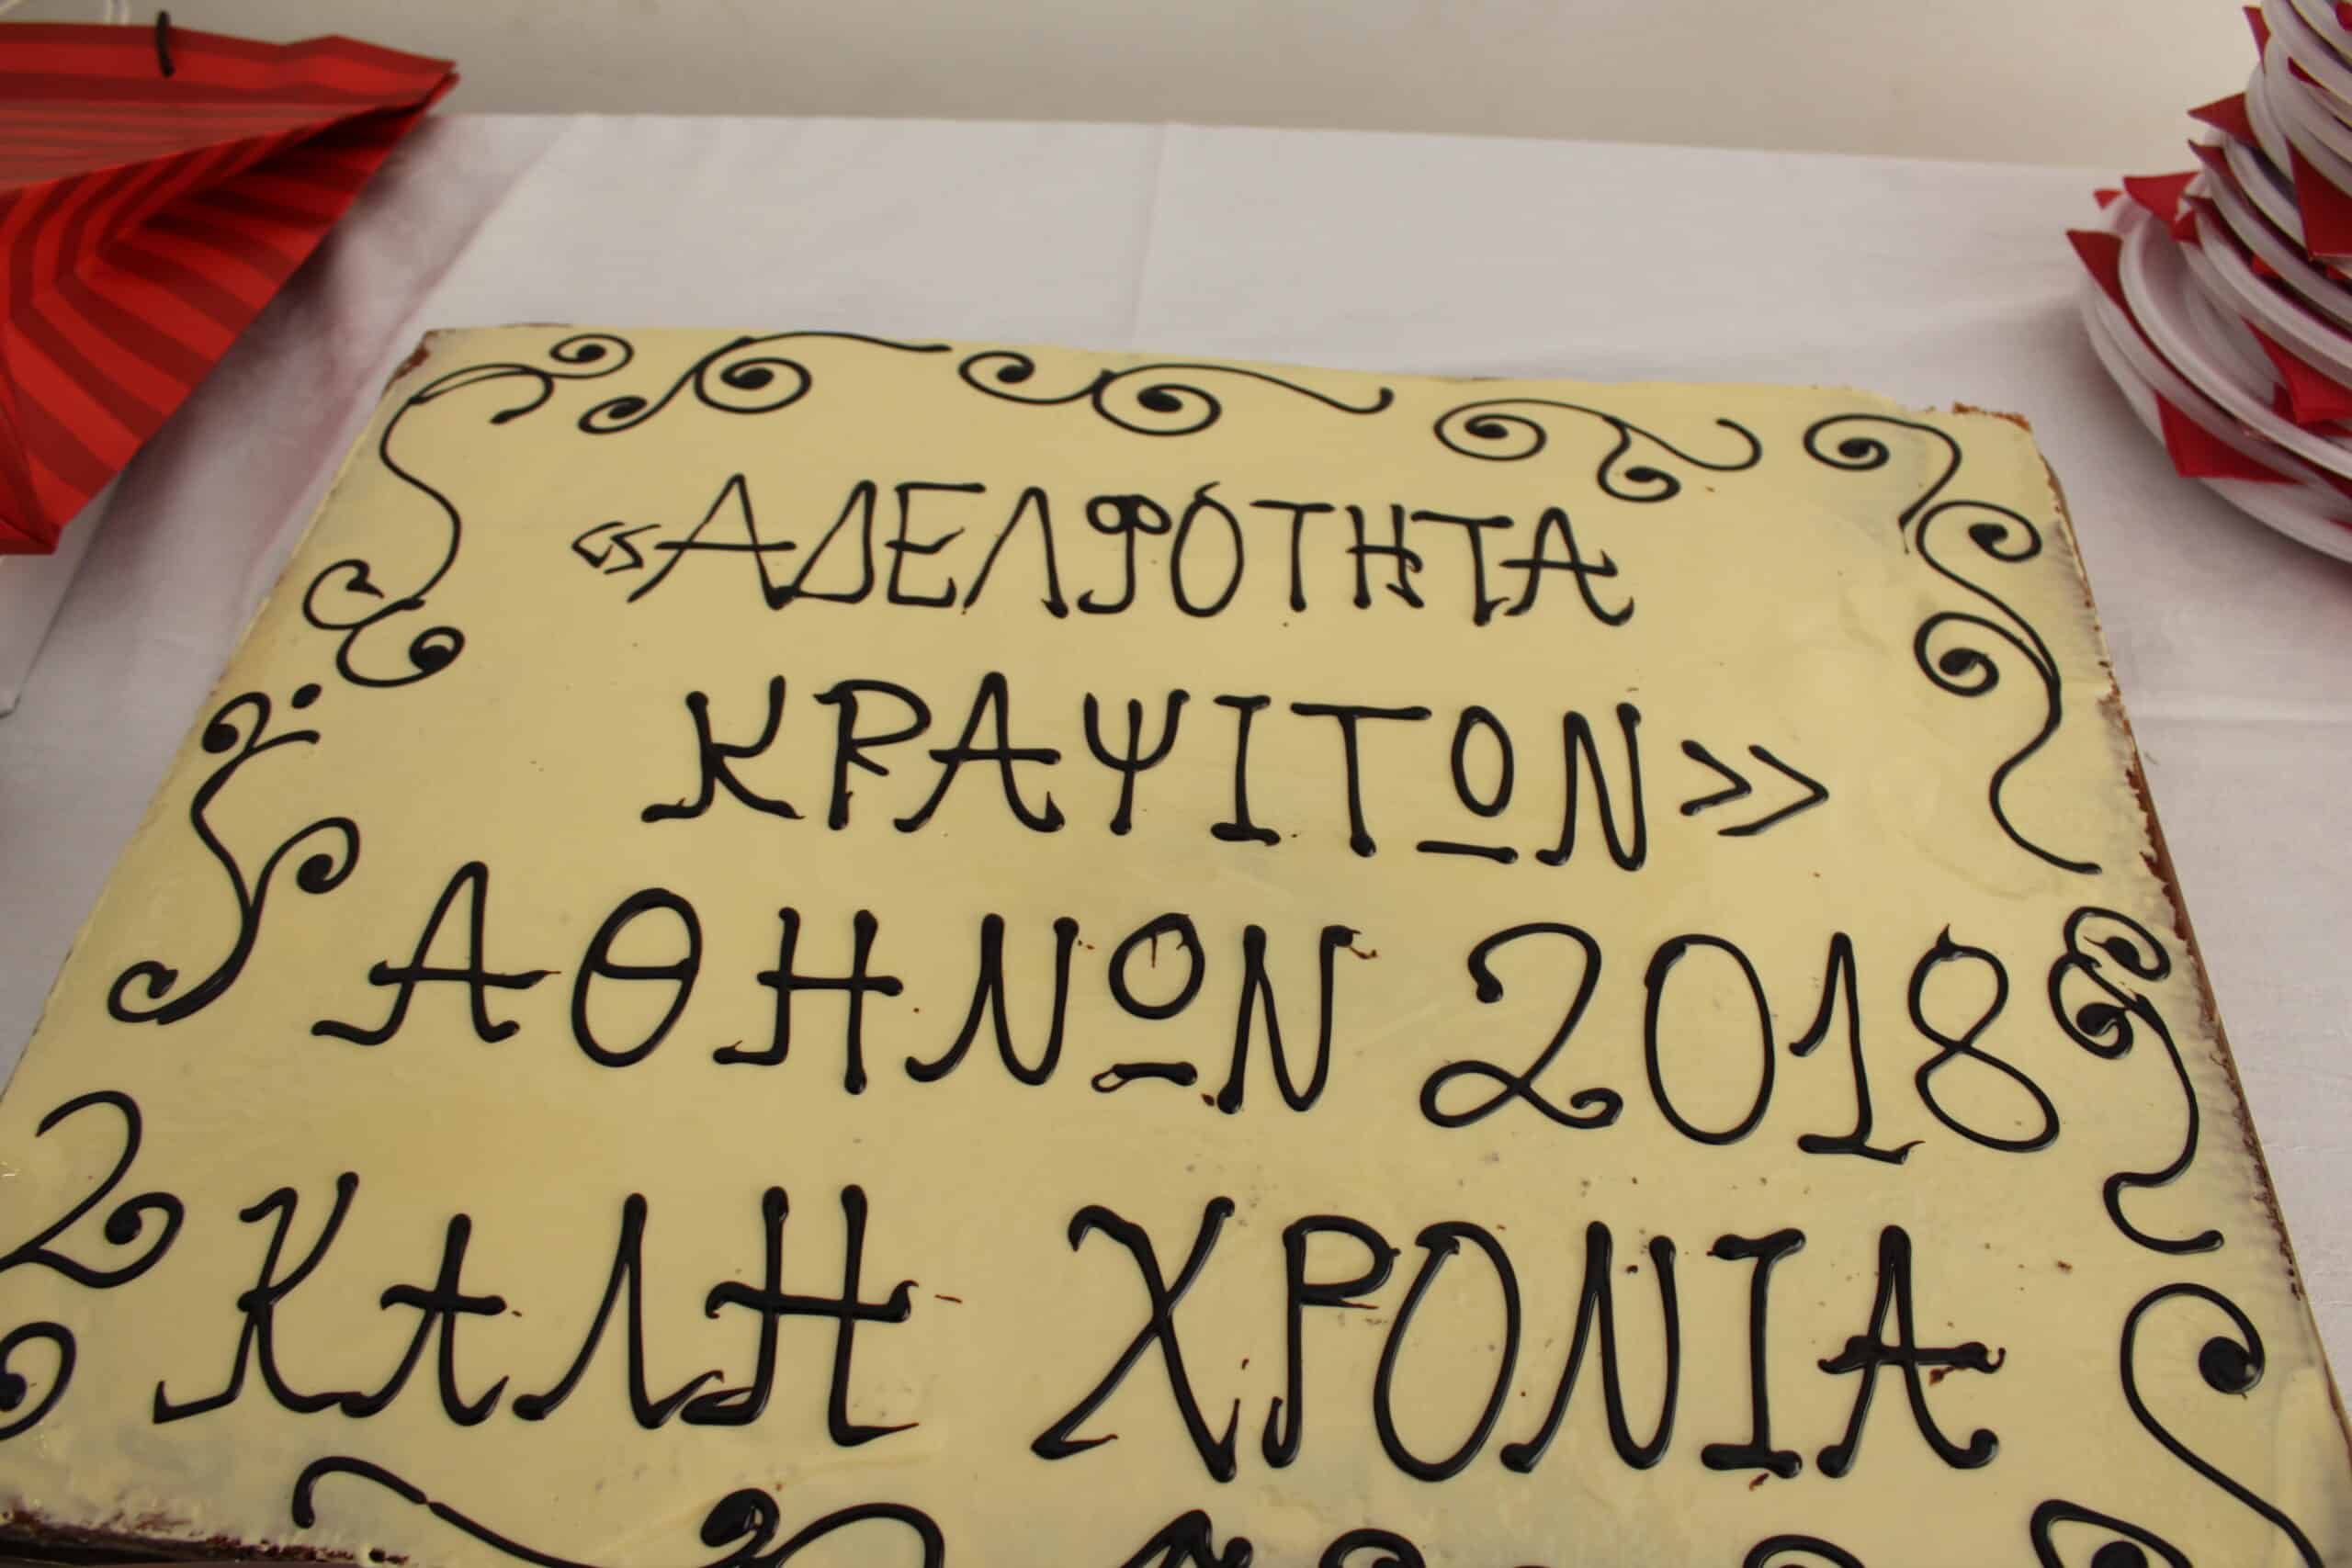 «ΑΔΕΛΦΟΤΗΤΑ
ΚΡΑΨΙΤΩΝ»
ΑΘΗΝΩΝ 2018
ΚΑΛΗ ΧΡΟΝΙΑ